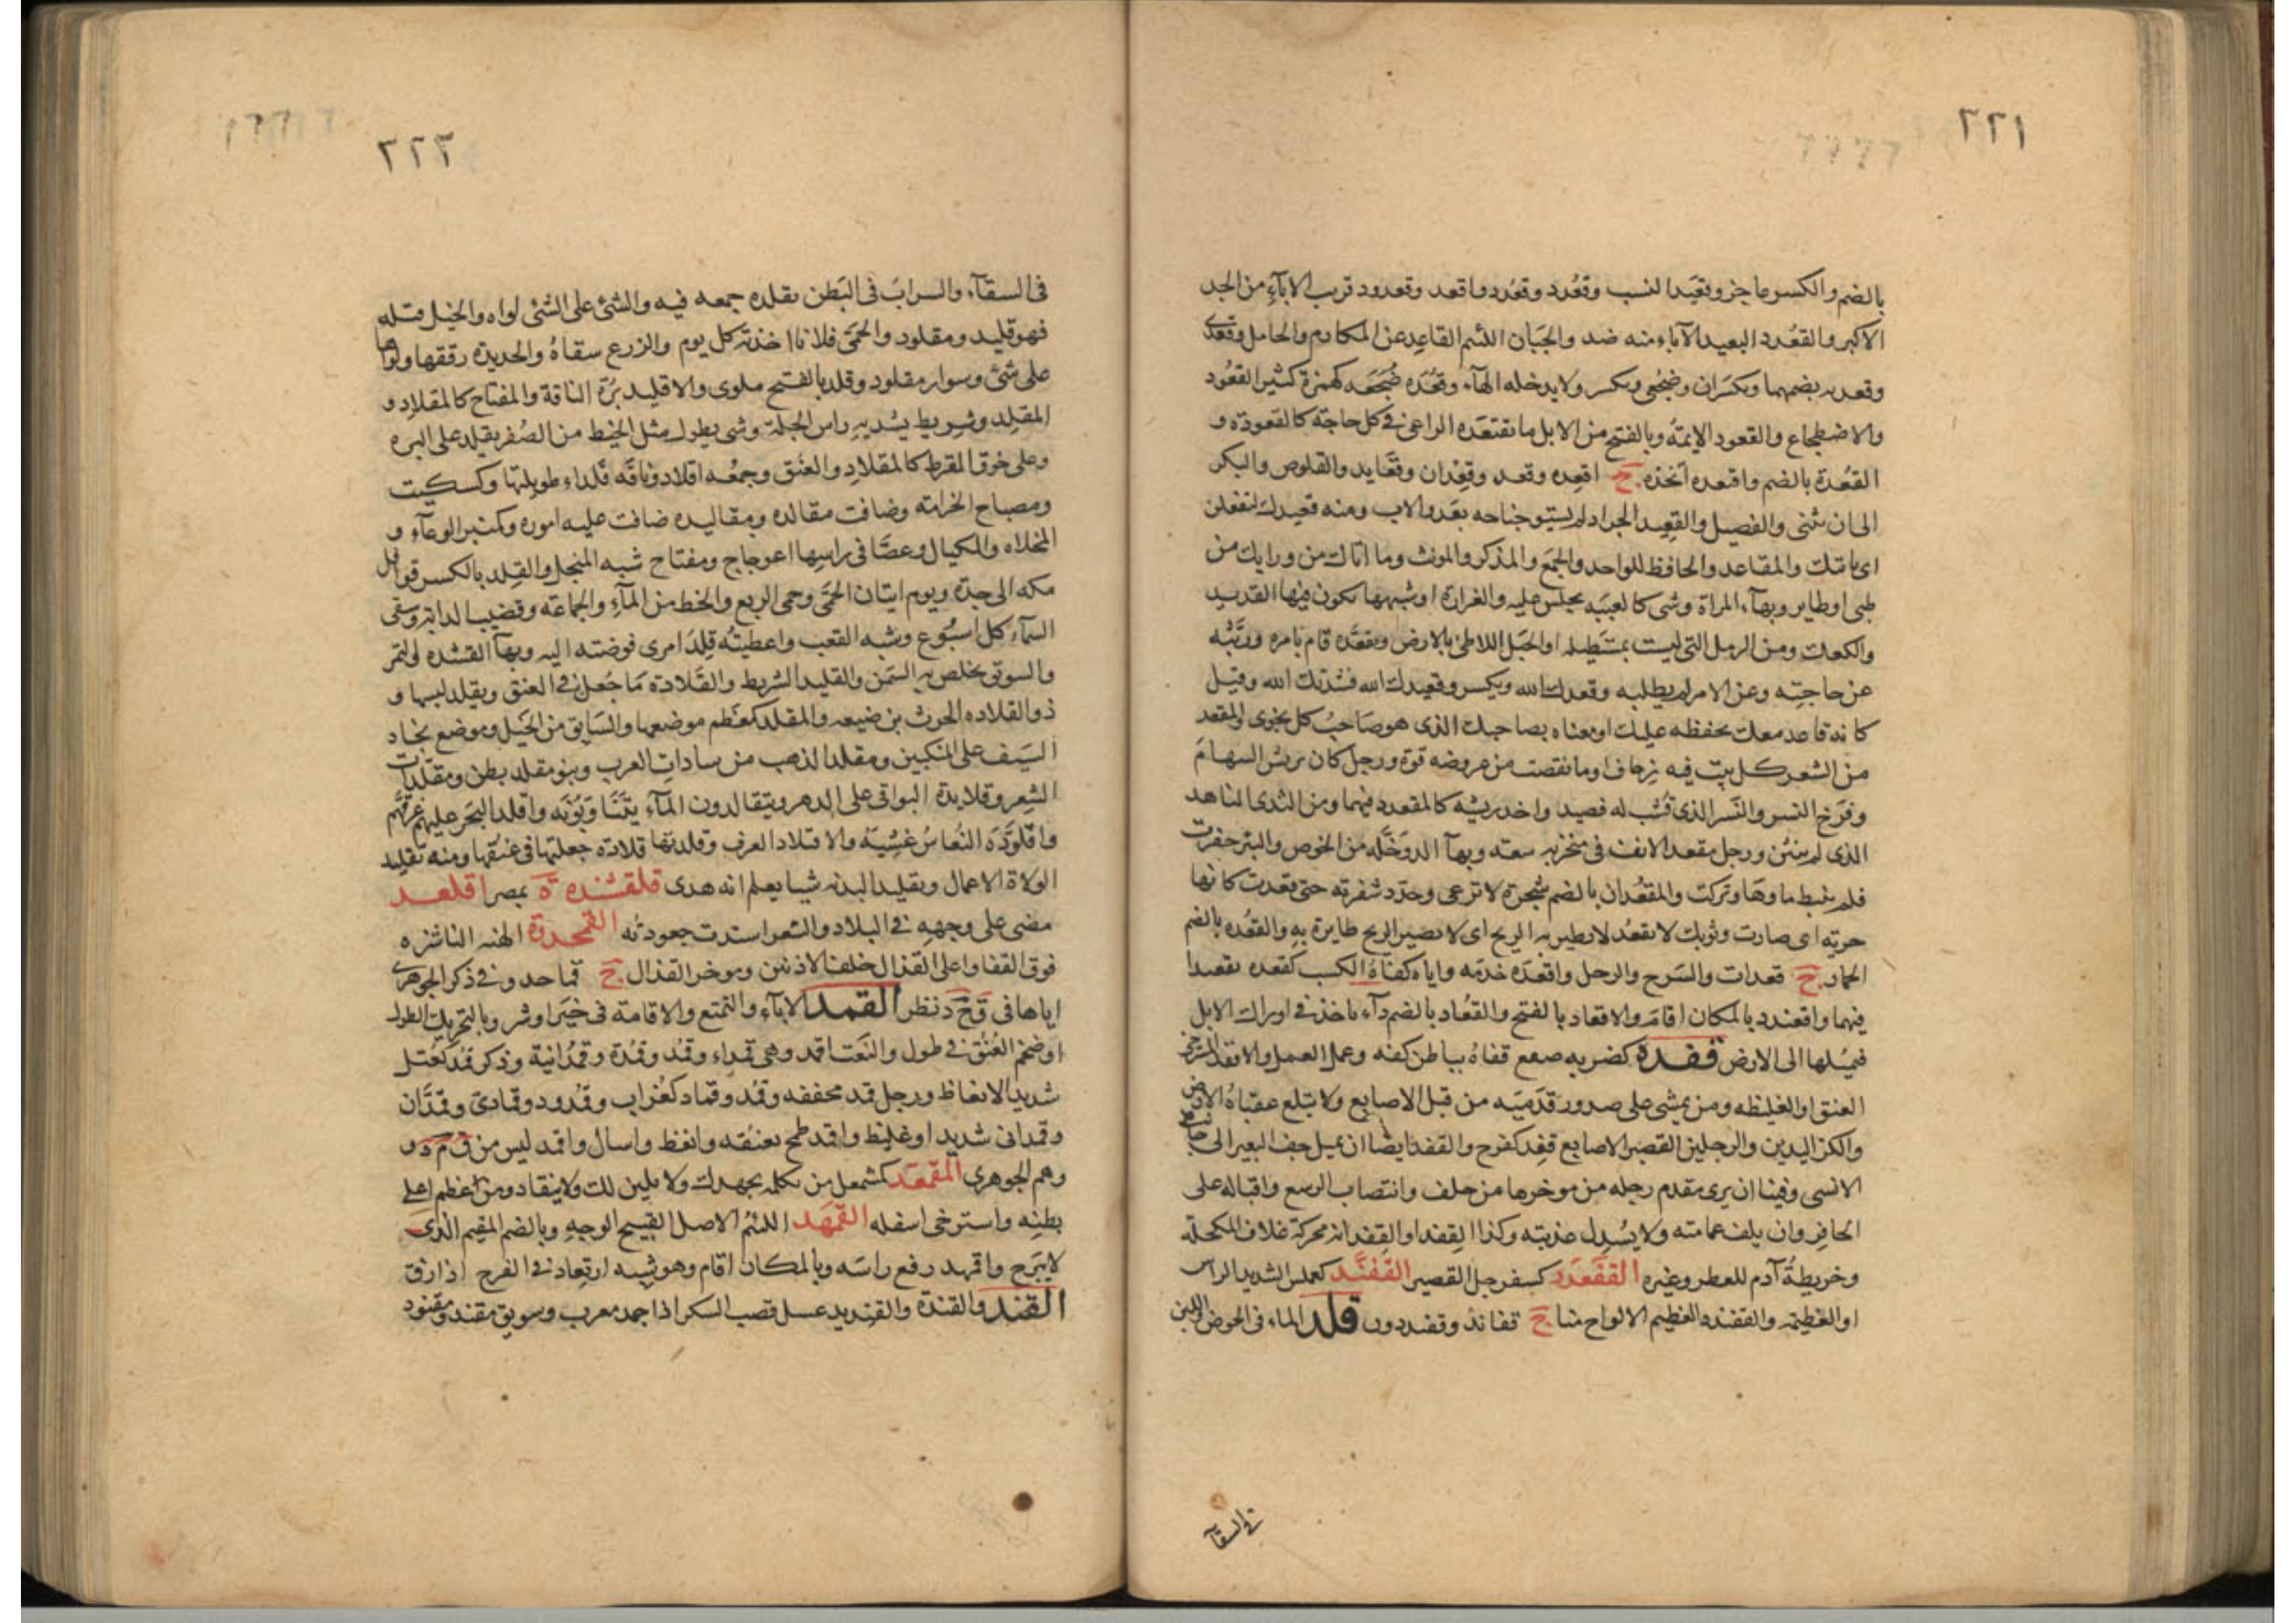 ٢٢١
بالضم والكسر عاجز وقعيد النسب وقعدد وقعدد واقعد وقعدود قريب الاباء من الجد
الاكبر والقعدد البعيد الآباء منه ضد والجبان اللئيم القاعد عن المكارم والخامل وقعدى
وقعديه بضمهما ويكسران وضجعى ويكسر ولا يدخله الهاء وقعدة ضجعه كهمزة كثير القعود
والاضطجاع والقعود الايمة وبالفتح من الابل ما يقتعده الراعى فى كل حاجة كالقعودة و
القعدة بالضم واقتعده اتخذه ج اقعده وقعد وقعدان وقعايد والقلوص والبكر
الى ان يثنى والفصيل والقعيد الجراد لم يستو جناحه بعد والاب ومنه قعيدك لتفعلن
اى بابيك والمقاعد والحافظ للواحد والجمع والمذكر والمونث وما اتاك من ورايك من
ظبى او طاير وبهاء المراة وشى كالعيبه يجلس عليه والغرارة او شبهها يكون فيها القديد
والكعك ومن الرمل التى ليست بمستطيله او الحبل اللاطئ بالارض وتقعده قام بامره وربثه
عن حاجته وعن الامر لم يطلبه وقعدك الله ويكسر وقعيدك الله نشدتك الله وقيل
كانه قاعد معك بحفظه عليك او معناه بصاحبك الذى هو صاحب كل نجوى والمقعد
من الشعر كل بيت فيه زحاف او ما نقصت من عروضه قوة ورجل كان يريش السهام
وفرخ النسر والنسر الذى قشب له فصيد واخد ريشه كالمقعدد فيهما ومن الثدى الناهد
الذى لم ينثن ورجل مقعد الانف فى منخريه سعة وبهاء الدوخله من الخوص والبئر حفرت
فلم ينبط ماوها وتركت والمقعدان بالضم شجرة لا ترعى وحدد شفرته حتى قعدت كانها
حربة اى صارت وثوبك لا تقعد لا تطير به الريح اى لا تصير الريح طايرة به والقعده بالضم
الحمار ج قعدات والسرج والرحل واقعده خدمه واباه كفاه الكسب كقعده تقعيدا
فيهما واقعندد بالمكان اقام والاقعاد بالفتح والقعاد بالضم داء ياخذ فى اوراك الابل
فيميلها الى الارض قفده كضربه صفع قفاه بباطن كفه وعمل العمل والاقفد المسترخى
العنق او الغليظه ومن يمشى على صدور قدميه من قبل الاصابع ولا يبلغ عقباه الارض
والكز اليدين والرجلين القصير الاصابع قفد كفرح والقفد ايضا ان يميل خف البعير الى جانب
الانسى وفينا ان يرى مقدم رجله من موخرها من خلف وانتصاب الرسغ واقباله على
الحافر وان يلف عمامته ولا يسدل عذبته وكذا القفد او القفدانه محركة غلاف المكحلة
وخريطة آدم للعطر وغيره القفعدد كسفرجل القصير القفند كعملس الشديد الراس
او العظيمه والقفندد العظيم الالواح منا ج قفاند وقفنددون قلد الماء فى الحوض واللبن
فى السقآ
٢٢٢
فى السقآء والشراب فى البطن يقلده جمعه فيه والشئ على الشئ لواه والحبل فتله
فهو قليد ومقلود والحمى فلانا اخذته كل يوم والزرع سقاه والحديدة رققها ولواها
على شئ وسوار مقلود وقلد بالفتح ملوى والاقليد برة الناقة والمفتاح كالمقلاد و
المقلد وشريط يشد به راس الجلة وشى يطول مثل الخيط من الصفر يقلد على البره
وعلى خرق القرط كالمقلاد والعنق وجمعه اقلاد وناقه قلداء طويلتها وكسكيت
ومصباح الخزانه وضاقت مقالده ومقاليده ضاقت عليه اموره وكمنبر الوعآء و
المخلاه والمكيال وعصا فى راسها اعوجاج ومفتاح شبه المنجل والقلد بالكسر قوافل
مكه الى جدة ويوم اتيان الحمى وحمى الربع والحظ من المآء والجماعه وقضيب الدابة وسقى
السمآء كل اسبوع وشبه القعب واعطيته قلد امرى فوضته اليه وبهآ القشده والتمر
والسويق يخلص به السمن والقليد الشريط والقلادة ما جعل فى العنق وتقلد لبسها و
ذو القلاده الحرث بن ضبيعه والمقلد كمعظم موضعها والسابق من الخيل وموضع نجاد
السيف على المنكبين ومقلد الذهب من سادات العرب وبنو مقلد بطن ومقلدات
الشعر وقلايده البواقى على الدهر ويتقالدون المآء يتناوبونه واقلد البحر عليهم غرقهم
واقلوده النعاس غشيه والاقتلاد الغرف وقلدتها قلادة جعلتها فى عنقها ومنه تقليد
الولاة الاعمال وتقليد البدنه شيا يعلم انه هدى قلقشنده ة بمصر اقلعد
مضى على وجهه فى البلاد والشعر اشتدت جعودته القمحدوة الهنه الناشزه
فوق القفا واعلى القذال خلف الاذنين وموخر القذال ج قماحد وفى ذكر الجوهرى
اياها فى ق ح د نظر القمد الابآء والتمنع والاقامة فى خير او شر وبالتحريك الطول
او ضخم العنق فى طول والنعت اقمد وهى قمداء وقمد وقمدة وقمدانية وذكر قمد كعتل
شديد الانعاظ ورجل قمد مخففه وقمد وقماد كغراب وقمدود وقمادى وقمدان
وقمدانى شديد او غليظ واقمد طمح بعنقه وانعظ واسال واقمد ليس من ق م ه د
وهم الجوهرى المقمعد كمشمعل من تكلمه بجهدك ولا يلين لك ولا ينقاد ومن عظم اعلى
بطنه واسترخى اسفله القمهد اللئيم الاصل القبيح الوجه وبالضم المقيم الذى
لا يبرح واقمهد رفع راسه وبالمكان اقام وهو شبه ارتعاد فى الفرخ اذا زق
القند والقندة والقنديد عسل قصب السكر اذا جمد معرب وسويق مقند ومقنود